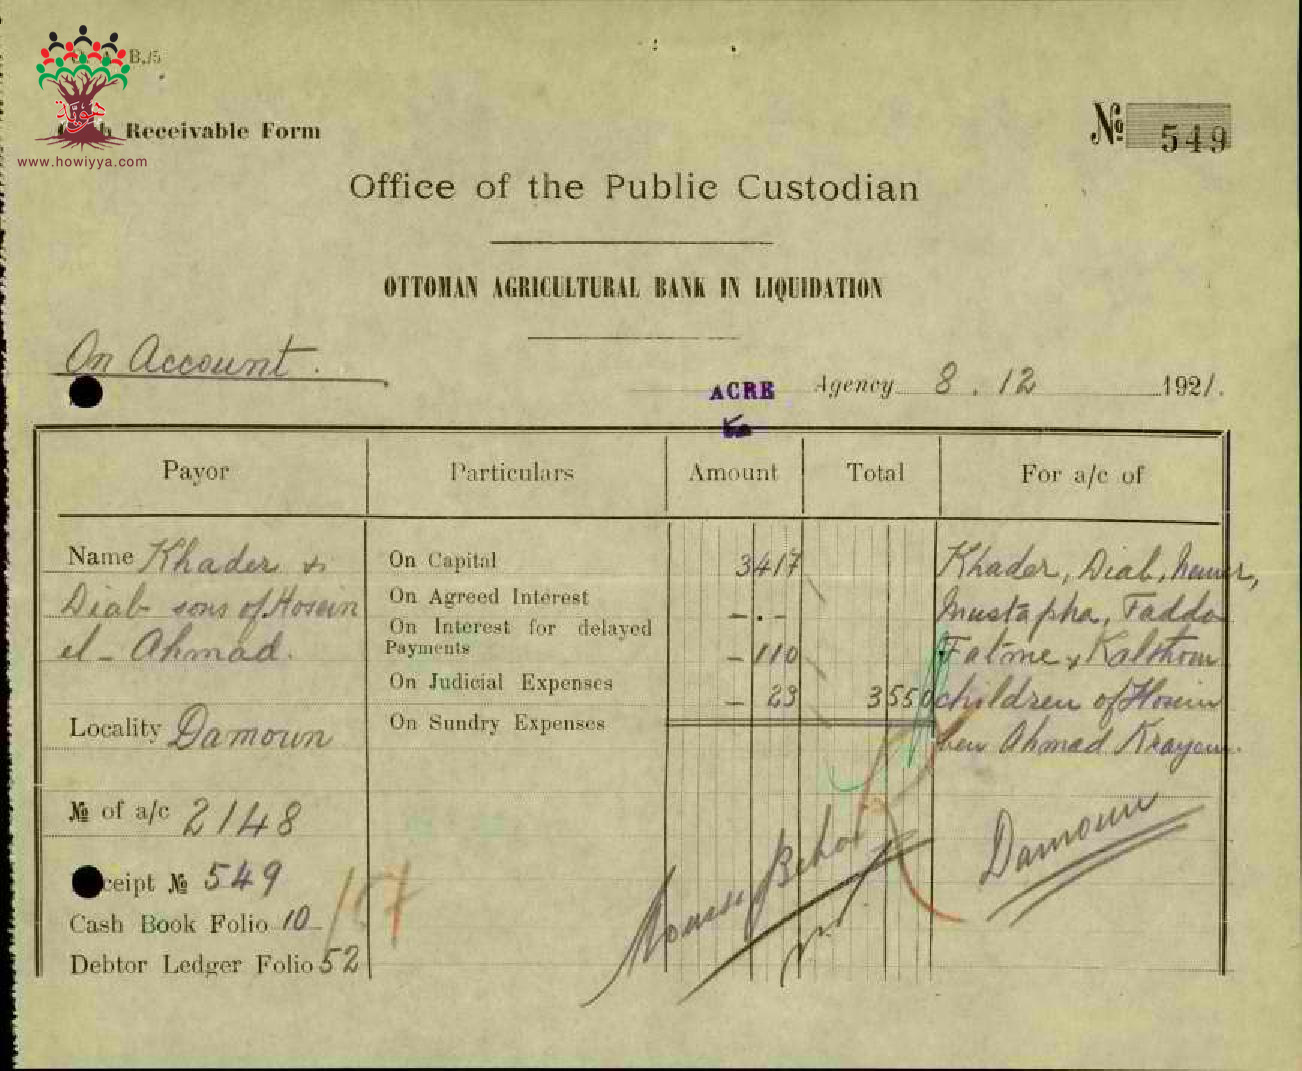 B./5
Receivable Form
www.howiyya.com
№ 549
Office of the Public Custodian
OTTOMAN AGRICULTURAL BANK IN LIQUIDATION
On Account.
ACRE Agency 8.12 1921.
Payor Particulars Amount Total For a/c of
Name Khader & On Capital 3417 Khader, Diab, Nemer,
Diab sons of Hosein On Agreed Interest -.- Mustapha, Fadda
el-Ahmad. On Interest for delayed Payments - 110 Fatme & Kalthoum
On Judicial Expenses - 23 3550 children of Hosein
Locality Damoun On Sundry Expenses ben Ahmad Krayem.
№ of a/c 2148
Damoun
ceipt № 549
107
Cash Book Folio 10
Debtor Ledger Folio 52